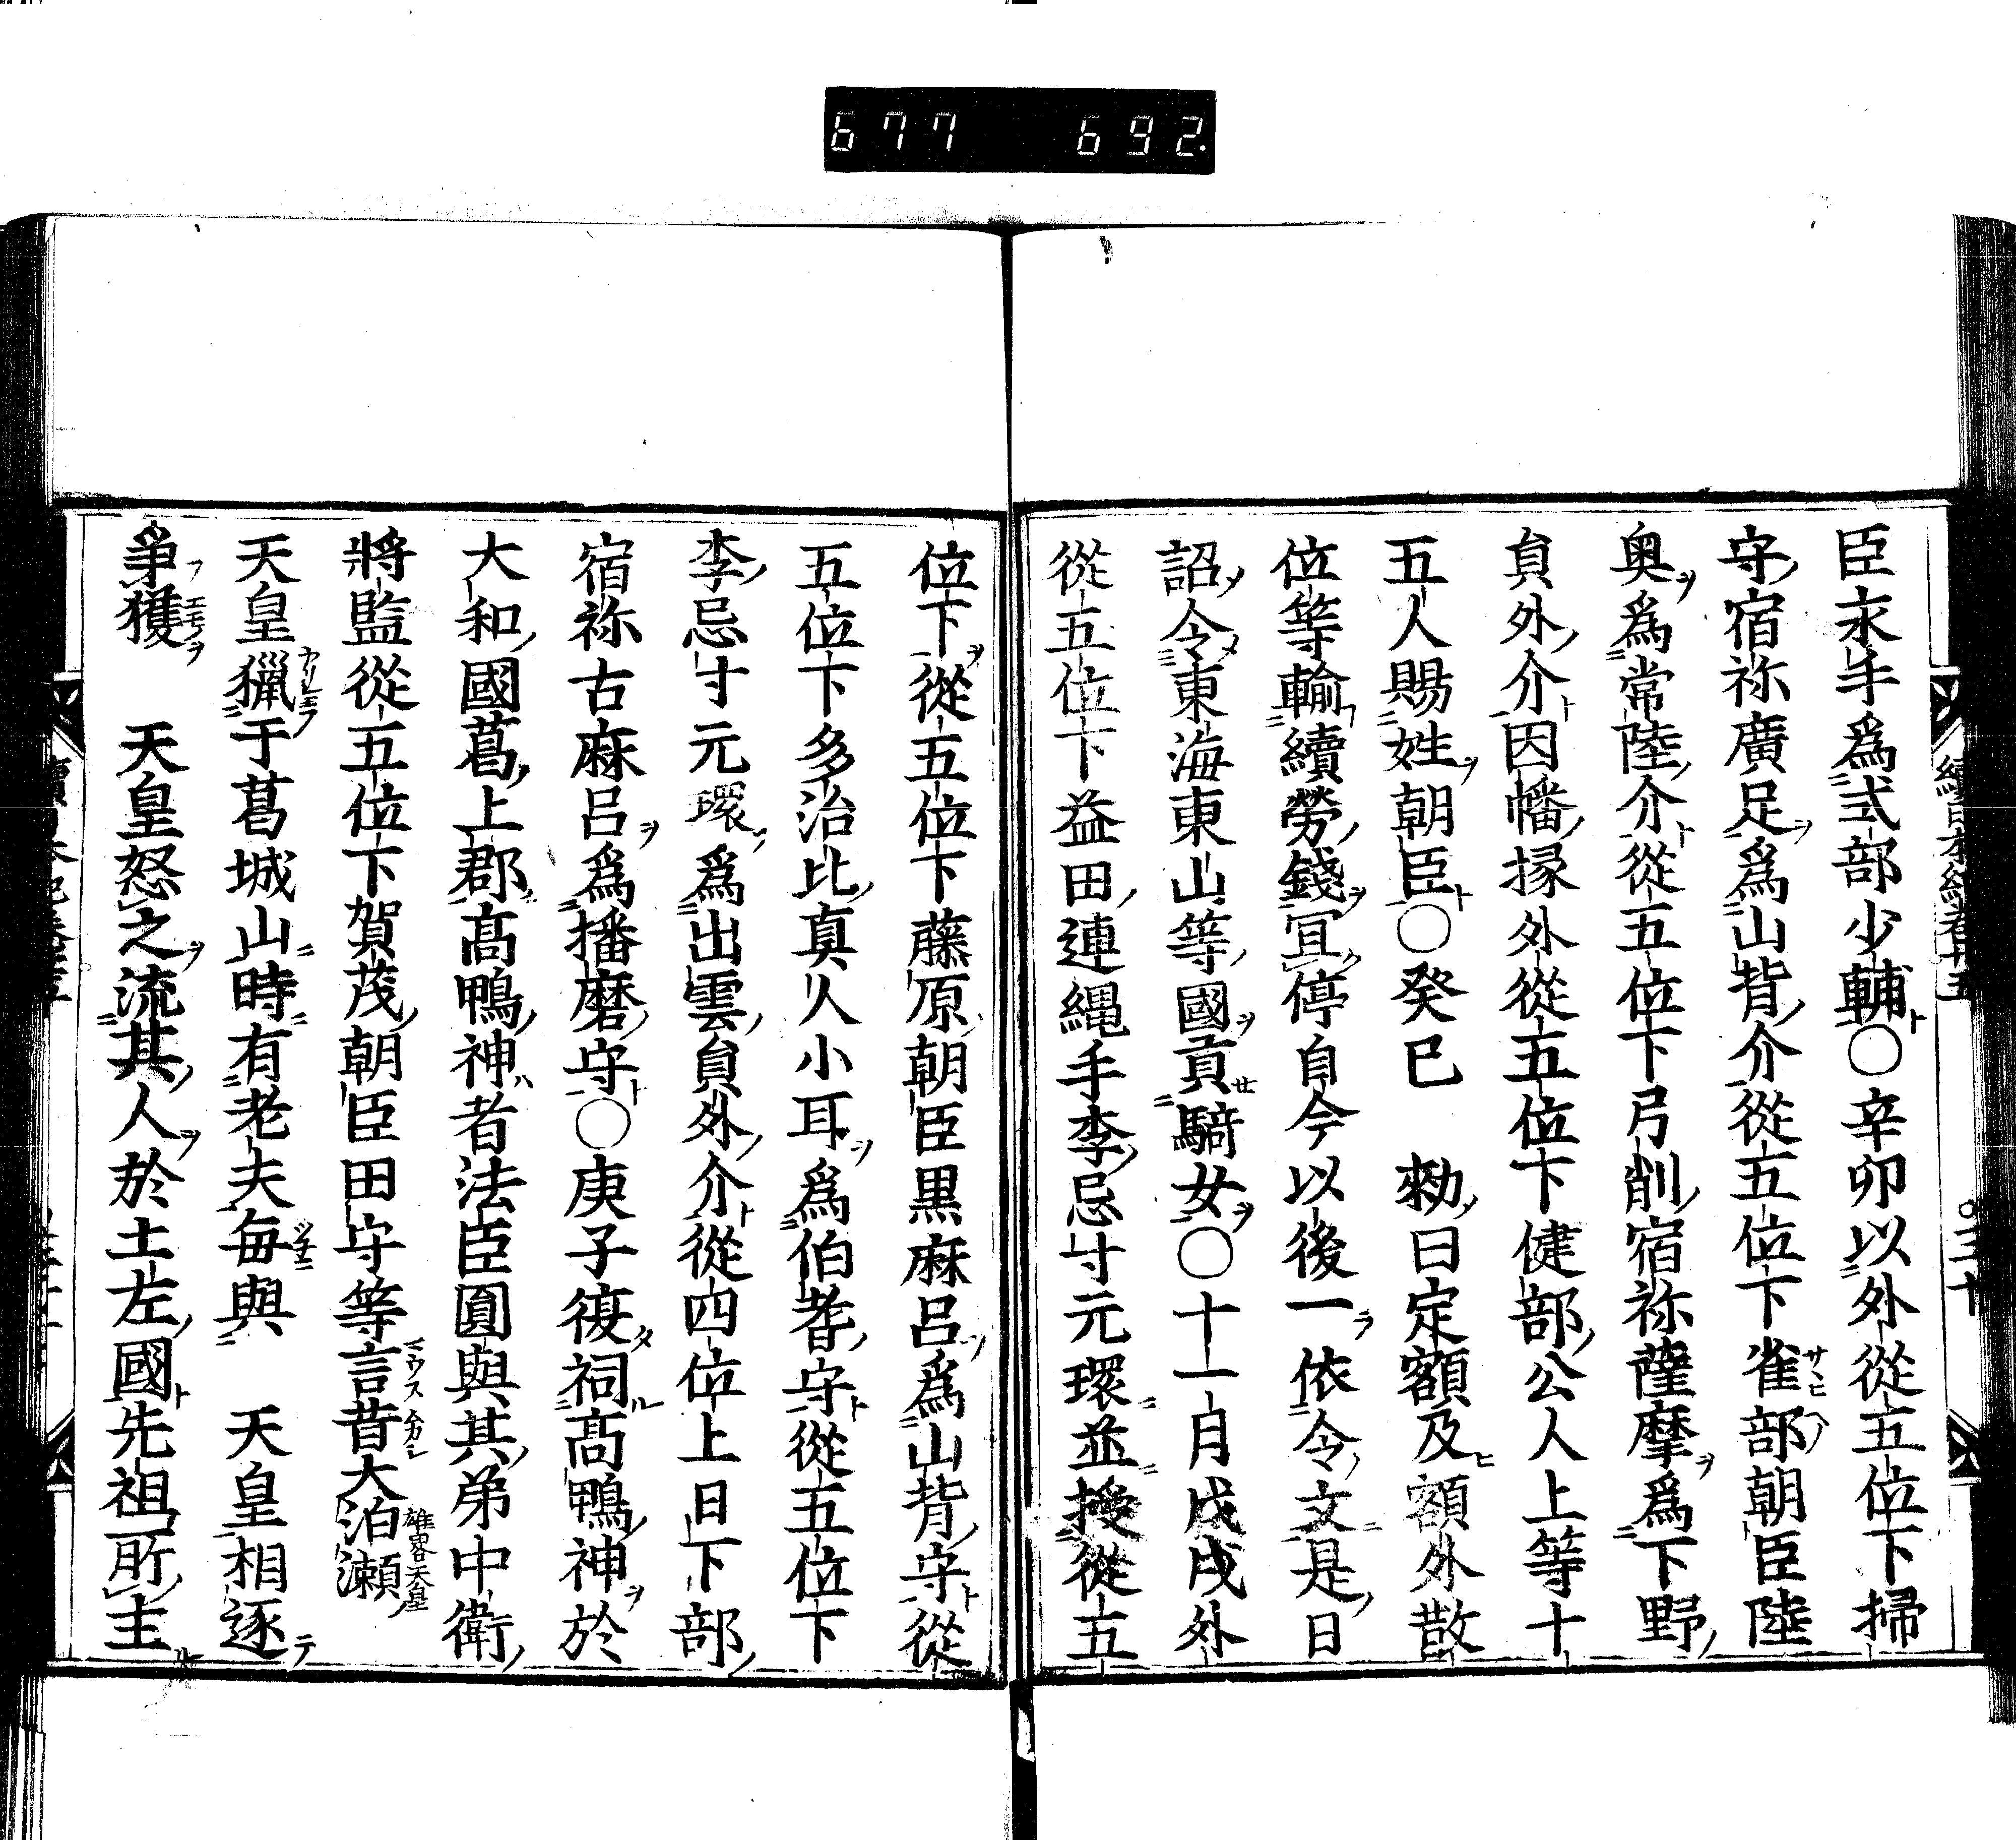 677 692.
臣永手爲式部少輔○辛卯以外從五位下掃
守宿祢廣足爲山背介從五位下雀部朝臣陸
奥爲常陸介從五位下弓削宿祢薩摩爲下野
負外介因幡掾外從五位下健部公人上等十
五人賜姓朝臣○癸巳 勑曰定額及額外散
位等輸續勞錢冝停自今以後一依令文是日
詔令東海東山等國貢騎女○十一月戊戌外
從五位下益田連縄手李忌寸元環並授從五
位下從五位下藤原朝臣黒麻呂爲山背守從
五位下多治比真人小耳爲伯耆守從五位下
李忌寸元環爲出雲負外介從四位上日下部
宿祢古麻呂爲播磨守○庚子復祠高鴨神於
大和國葛上郡高鴨神者法臣圓與其弟中衛
將監從五位下賀茂朝臣田守等言昔大泊瀬雄畧天皇
天皇獵于葛城山時有老夫毎與 天皇相逐
爭獲 天皇怒之流其人於土左國先祖所主